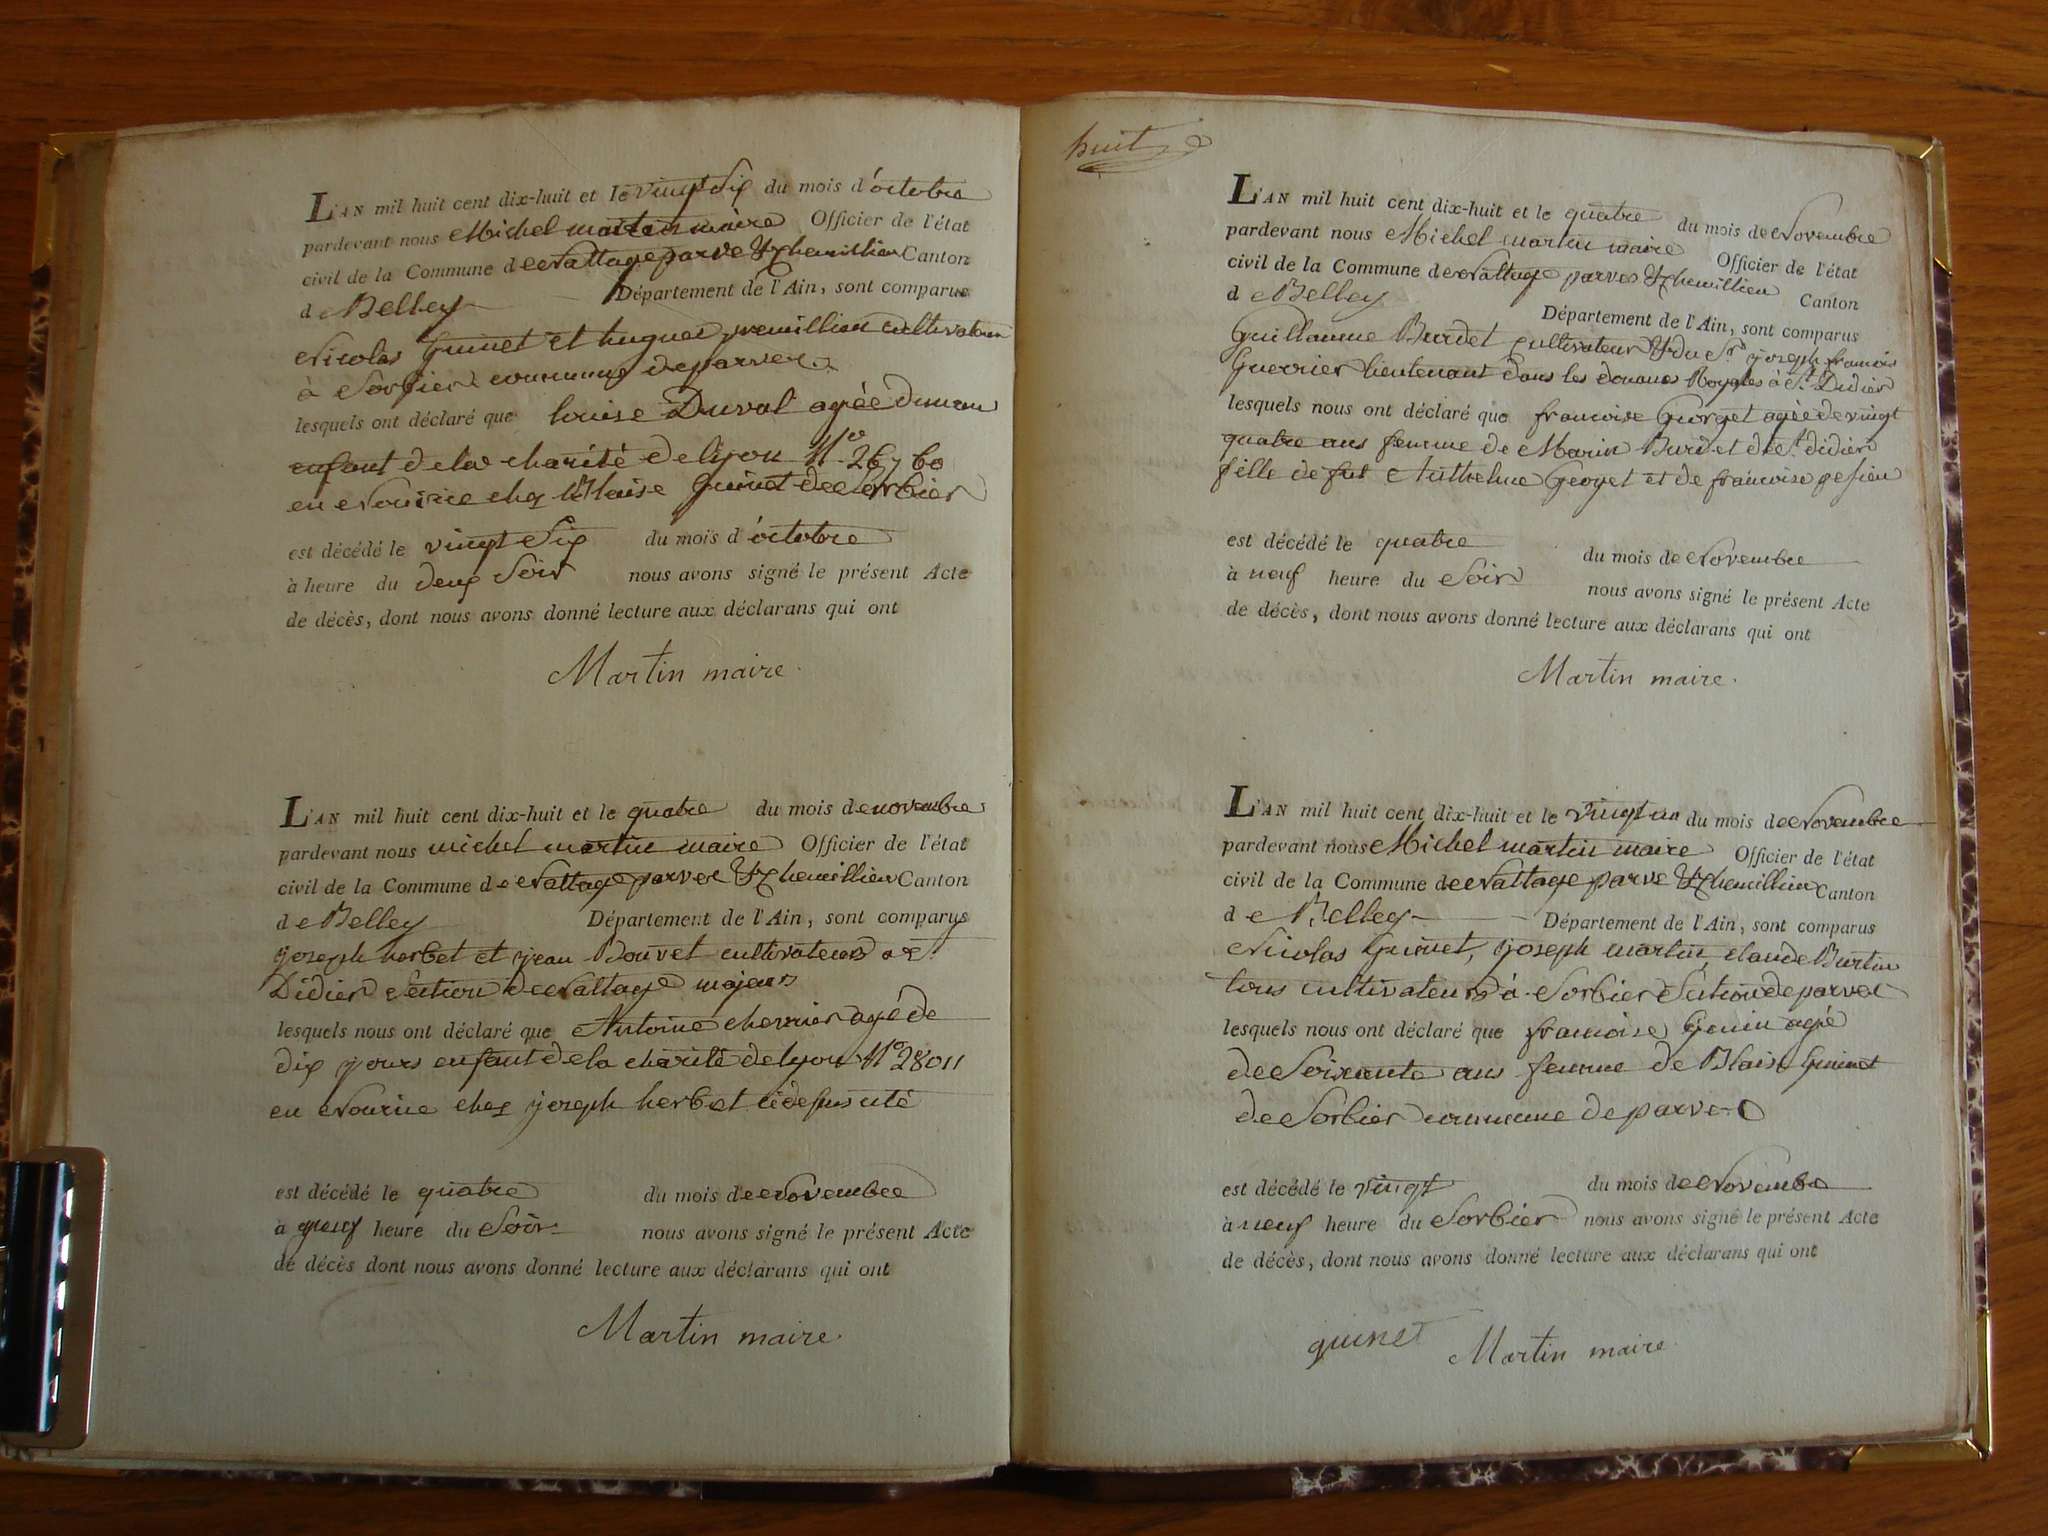 L'AN mil huit cent dix-huit et le vingt Six du mois d'octobre
pardevant nous Michel martin maire Officier de l'état
civil de la Commune de Nattage parve & Canton
de Belley Département de l'Ain, sont comparus
Nicolas Guinet et hugues premillieu cultivateurs
à Sorbier commune de parves
lesquels ont déclaré que louise Duval agée dun an
enfant de la charité de lyon N° 26760
en Nourice chez Blaise Guinet de Sorbier
est décédé le vingt Six du mois d'octobre
à heure du deux Soir nous avons signé le présent Acte
de décès, dont nous avons donné lecture aux déclarans qui ont
Martin maire
L'AN mil huit cent dix-huit et le quatre du mois de novembre
pardevant nous michel martin maire Officier de l'état
civil de la Commune de Nattage parves & Canton
de Belley Département de l'Ain, sont comparus
joseph herbet et jean Bouvet cultivateurs a St
Didier Section de Nattage majeurs
lesquels nous ont déclaré que Antoine chevrier agé de
dix jours enfant de la charité de lyon N° 28011
en Nourice chez joseph herbet
est décédé le quatre du mois de Novembre
à neuf heure du Soir nous avons signé le présent Acte
de décès dont nous avons donné lecture aux déclarans qui ont
Martin maire
huit
L'AN mil huit cent dix-huit et le quatre du mois de Novembre
pardevant nous Michel martin maire Officier de l'état
civil de la Commune de Nattage parves & Canton
de Belley Département de l'Ain, sont comparus
Guillaume Burdet cultivateur & du Sr joseph francois
Guerrier lieutenant dans les douanes Royales à St Didier
lesquels nous ont déclaré que francoise Gorget agée de vingt
quatre ans femme de Marin Burdet de St didier
fille de fut Anthelme Gorget et de francoise
est décédé le quatre du mois de Novembre
à neuf heure du Soir nous avons signé le présent Acte
de décès, dont nous avons donné lecture aux déclarans qui ont
Martin maire
L'AN mil huit cent dix-huit et le vingt un du mois de Novembre
pardevant nous Michel martin maire Officier de l'état
civil de la Commune de Nattage parve & Canton
de Belley Département de l'Ain, sont comparus
Nicolas Guinet, joseph martin, claude Burtin
tous cultivateurs à Sorbier Section de parves
lesquels nous ont déclaré que francoise Genin agée
de Soixante ans femme de Blaise Guinet
de Sorbier commune de parves
est décédé le vingt du mois de Novembre
à neuf heure du Sorbier nous avons signé le présent Acte
de décès, dont nous avons donné lecture aux déclarans qui ont
guinet Martin maire